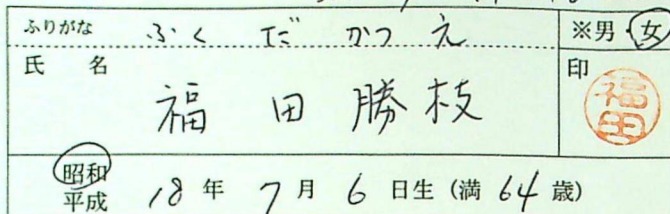 ふりがな ふくだ かつえ ※男・女
氏 名 福田 勝枝 印 福田
昭和
平成 18年 7月 6日生 (満 64歳)